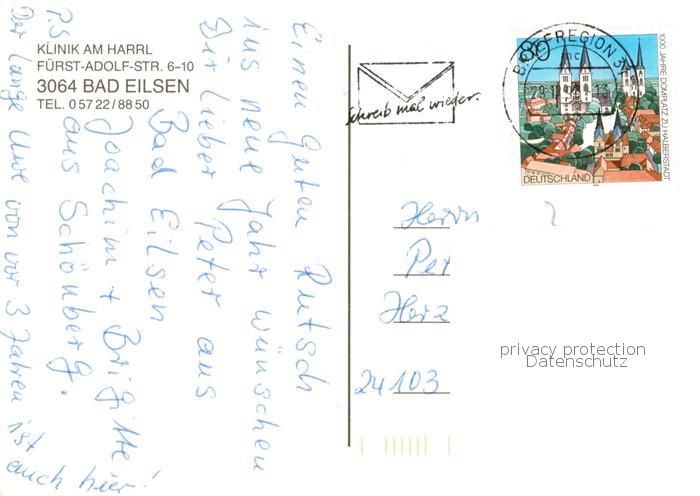 KLINIK AM HARRL
FÜRST-ADOLF-STR. 6–10
3064 BAD EILSEN
TEL. 0 57 22 / 88 50
Einen guten Rutsch
ins neue Jahr wünschen
Dir lieber Peter aus
Bad Eilsen
Joachim + Brigitte
aus Schönberg.
P.S
Der lange Uwe von vor 3 Jahren ist
auch hier!
schreib mal wieder.
BRIEFREGION
80
1000 JAHRE DOMPLATZ ZU HALBERSTADT
DEUTSCHLAND
Herrn
Pet
Herz
24103
privacy protection
Datenschutz